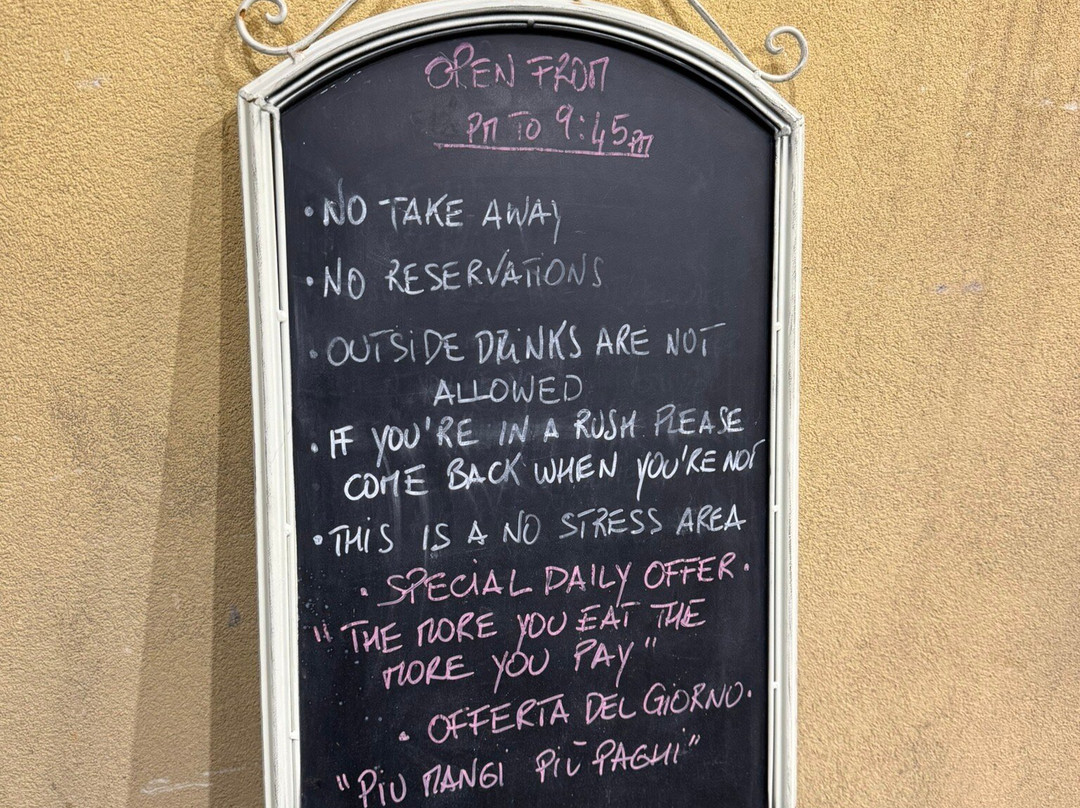 OPEN FROM
PM TO 9:45 PM
• NO TAKE AWAY
• NO RESERVATIONS
• OUTSIDE DRINKS ARE NOT
ALLOWED
• IF YOU'RE IN A RUSH PLEASE
COME BACK WHEN YOU'RE NOT
• THIS IS A NO STRESS AREA
• SPECIAL DAILY OFFER •
"THE MORE YOU EAT THE
MORE YOU PAY"
• OFFERTA DEL GIORNO •
"PIÙ MANGI PIÙ PAGHI"